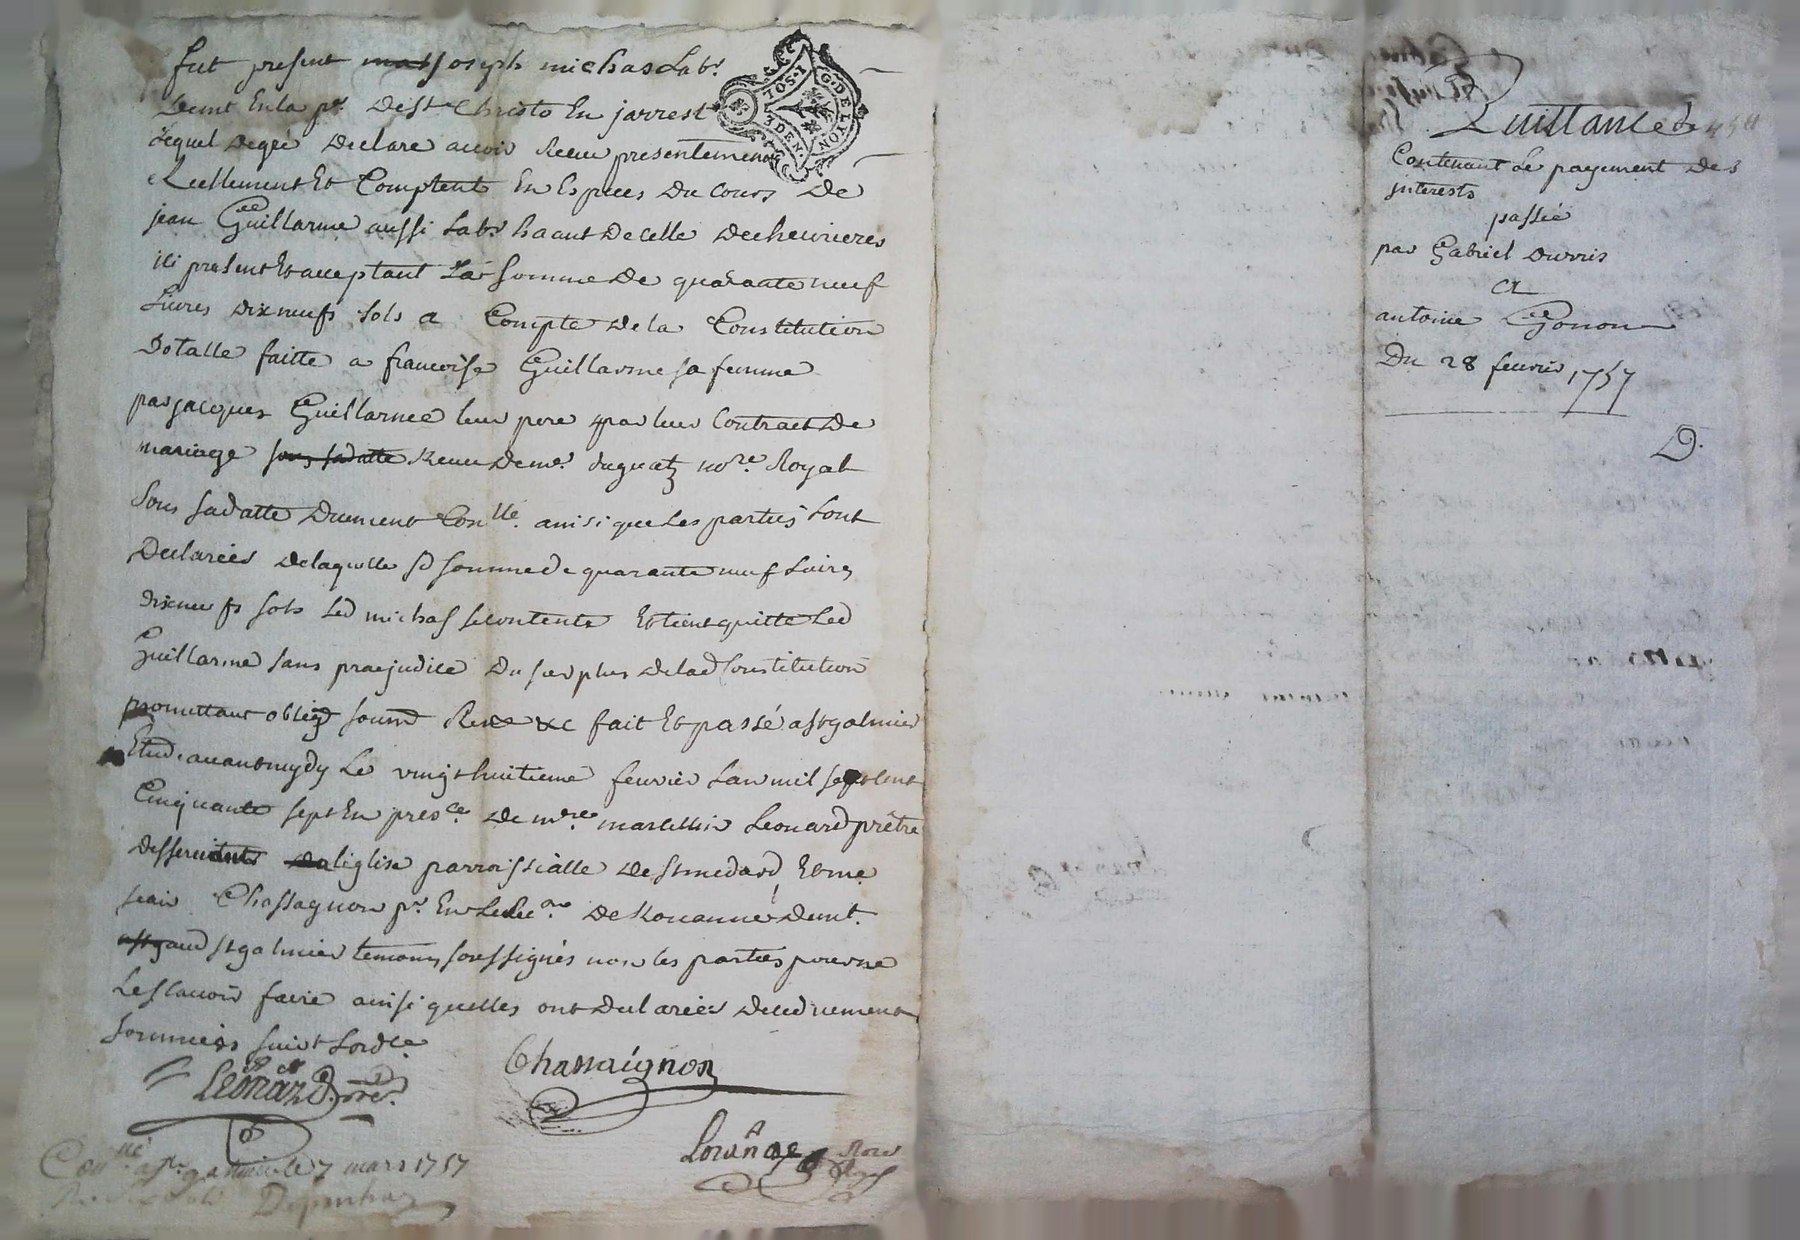 fut present joseph michas Labr.
Demt En la pr. De st Christo En jarrest
lequel De gré Declare avoir Receu presentement
Reellement Et Comptent En Especes Du Cours De
jean Guillarme aussi Labr. De celle De chevrieres
ici present Et acceptant La somme De quarante neuf
Livres Dix neufs sols a Compte De la Constitution
Dotalle faitte a francoise Guillarme sa femme
par jacques Guillarme leur pere par leur Contract De
mariage sous sa datte Receu De me. duguatz nore. Royal
sous sa datte Duement Conllé. ainsi que les parties lont
Declarées De laquelle sd somme De quarante neuf Livres
dix neufs sols Led michas se contente Et tient quitte Led
Guillarme sans praejudice Du surplus De lad Constitution
promettant obligt soumt Ren &c fait Et passé a st galmier
Etude avant mydy Le vingt huitieme fevrier Lan mil sept Cent
Cinquante sept En presce. De mre. marcellin Leonard prêtre
desservent leglise parroissialle De st medard Et me
jean Chassagnon pr. En De Rouanne Demt.
aud st galmier temoins soussignés non les parties pour ne
Le scavoir faire ainsi quelles ont Declarées De ce duement
sommées suivt Lordce.
Leonard ptre.
Chassaignon
Loranae Nore Ryl
Conllé. a st. galmier le 7 mars 1757
G. DE LYON
IOS. I
3 DEN.
Quittance de 49 ll
Contenant Le payement Des
interests
passée
par Gabriel Durris
a
antoine Gonon
Du 28 fevrier 1757
D.